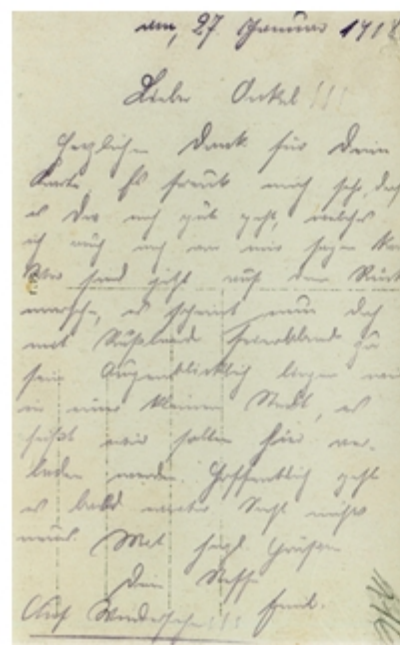 am, 27. Januar 1918
Lieber Onkel!!!
Herzlichen Dank für Deine
Karte. Es freut mich sehr, daß
es Dir noch gut geht, welches
ich auch noch von mir sagen kann.
Wir sind jetzt auf dem Rück
marsche, es scheint nun doch
mit Rußland Feierabend zu
sein. Augenblicklich liegen wir
in einer kleinen Stadt, es
heißt wir sollen hier ver-
laden werden. Hoffentlich geht
es bald weiter. Sonst nichts
neues. Mit herzl. Grüßen
Dein Neffe
Emil.
Auf Wiedersehn!!!